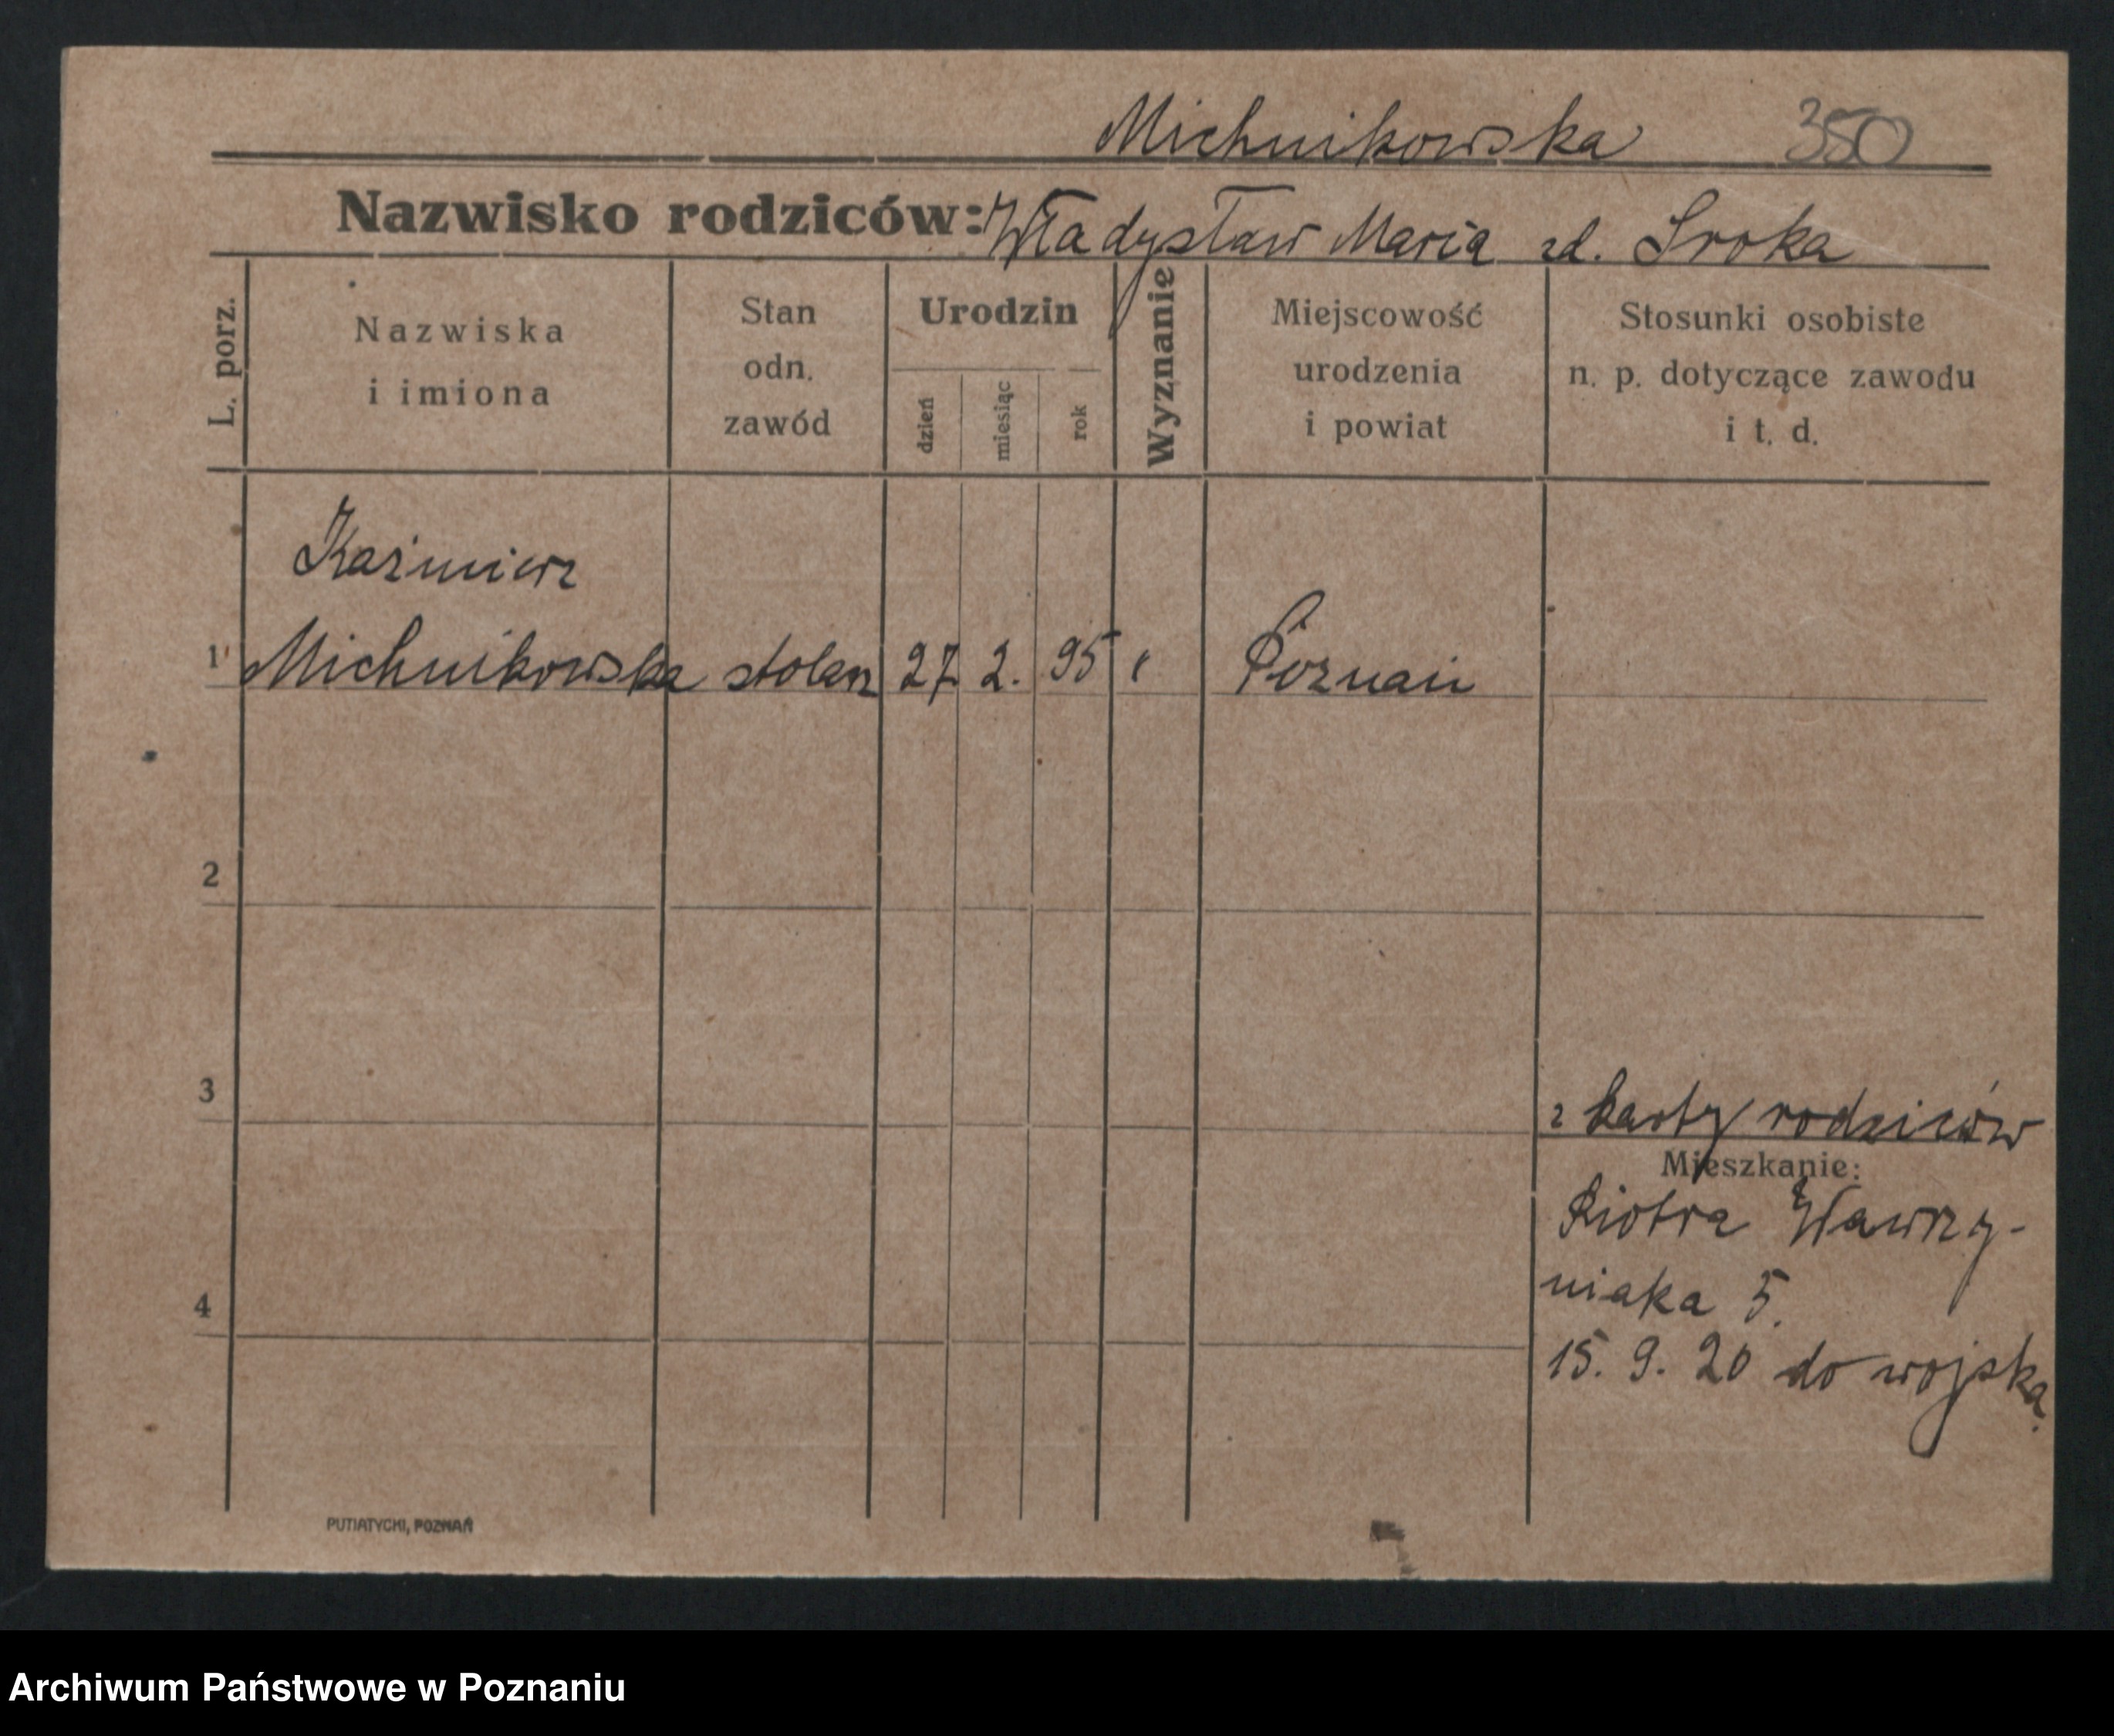 Michnikowska 350
Nazwisko rodziców: Władysław Maria zd. Sroka
L. porz.
Nazwiska
i imiona
Stan
odn.
zawód
Urodzin
dzień
miesiąc
rok
Wyznanie
Miejscowość
urodzenia
i powiat
Stosunki osobiste
n. p. dotyczące zawodu
i t. d.
Kazimierz
1 Michnikowska stolarz 27 2. 95 Poznań
2
3
z karty rodziców
Mieszkanie:
Piotra Wawrzy-
niaka 5.
4
15. 9. 20 do wojska.
PUTIATYCKI, POZNAŃ
Archiwum Państwowe w Poznaniu